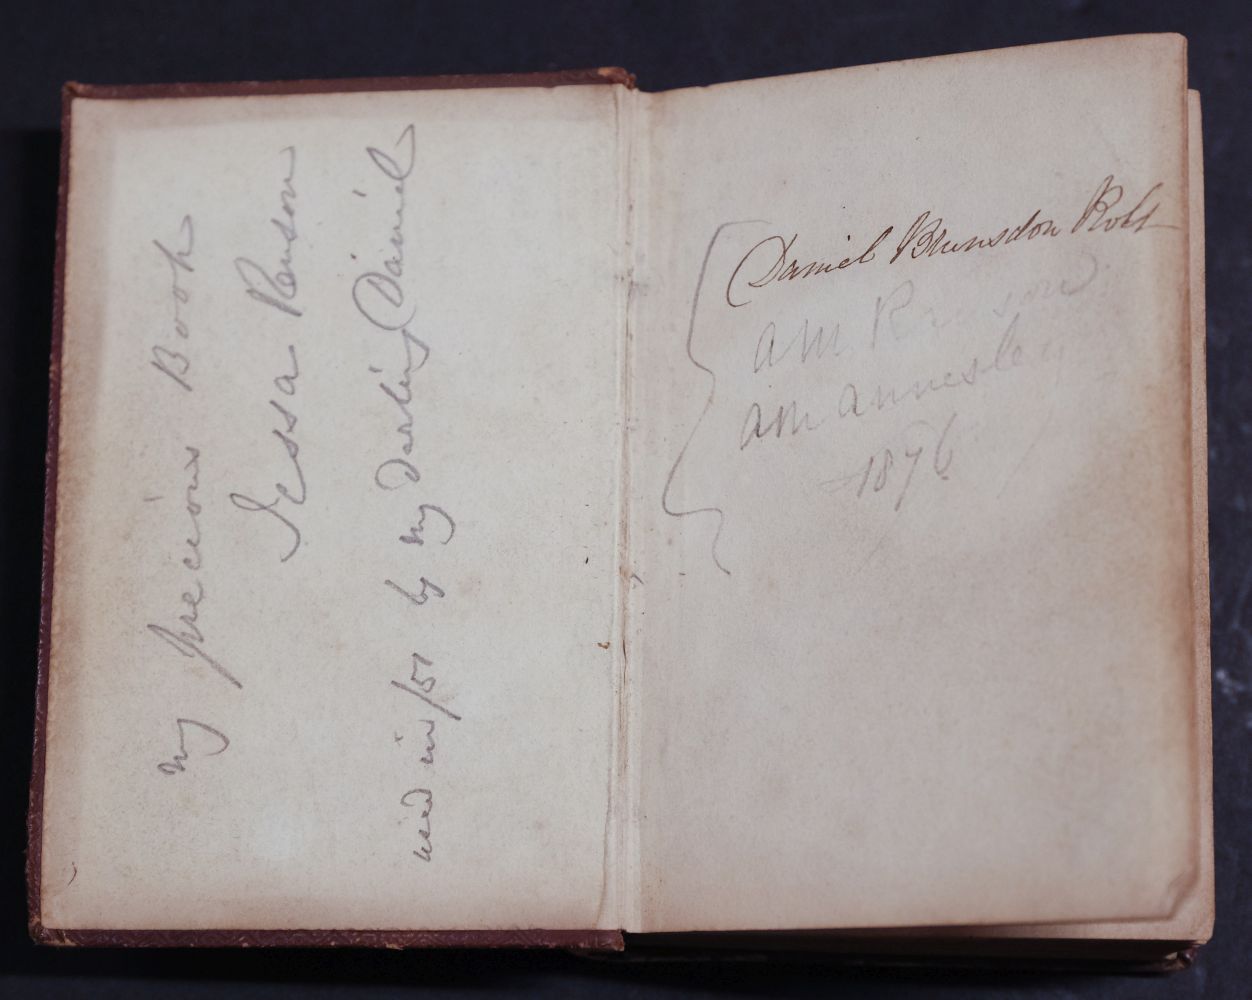 My precious Book
Jessa Renson
used in /51 by my Darling Daniel
Daniel Brunsdon Robt
AM Renson
AM Annesley
1876